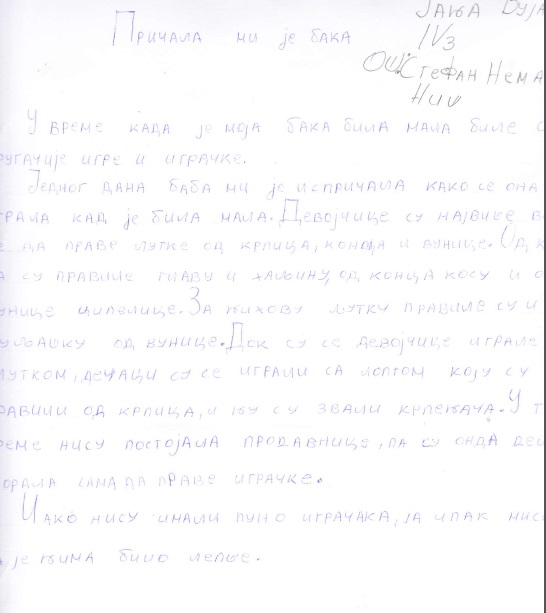 Јања Вуја
IV3
ОШ,,Стефан Нема
Ниш
Причала ми је бака
У време када је моја бака била мала биле с
ругачије игре и играчке.
Једног дана баба ми је испричала како се она
грала кад је била мала. Девојчице су највише во
е да праве лутке од крпица, конца и вунице. Од к
а су правиле главу и хаљину, од конца косу и о
унице ципелице. За њихову лутку правиле су и
уљашку од вунице. Док су се девојчице играле
лутком, дечаци су се играли са лоптом коју су
равили од крпица, и њу су звали крпењача. У т
реме нису постојала продавнице, па су онда дец
орала сама да праве играчке.
Иако нису имали пуно играчака, ја ипак мис
а је њима било лепше.